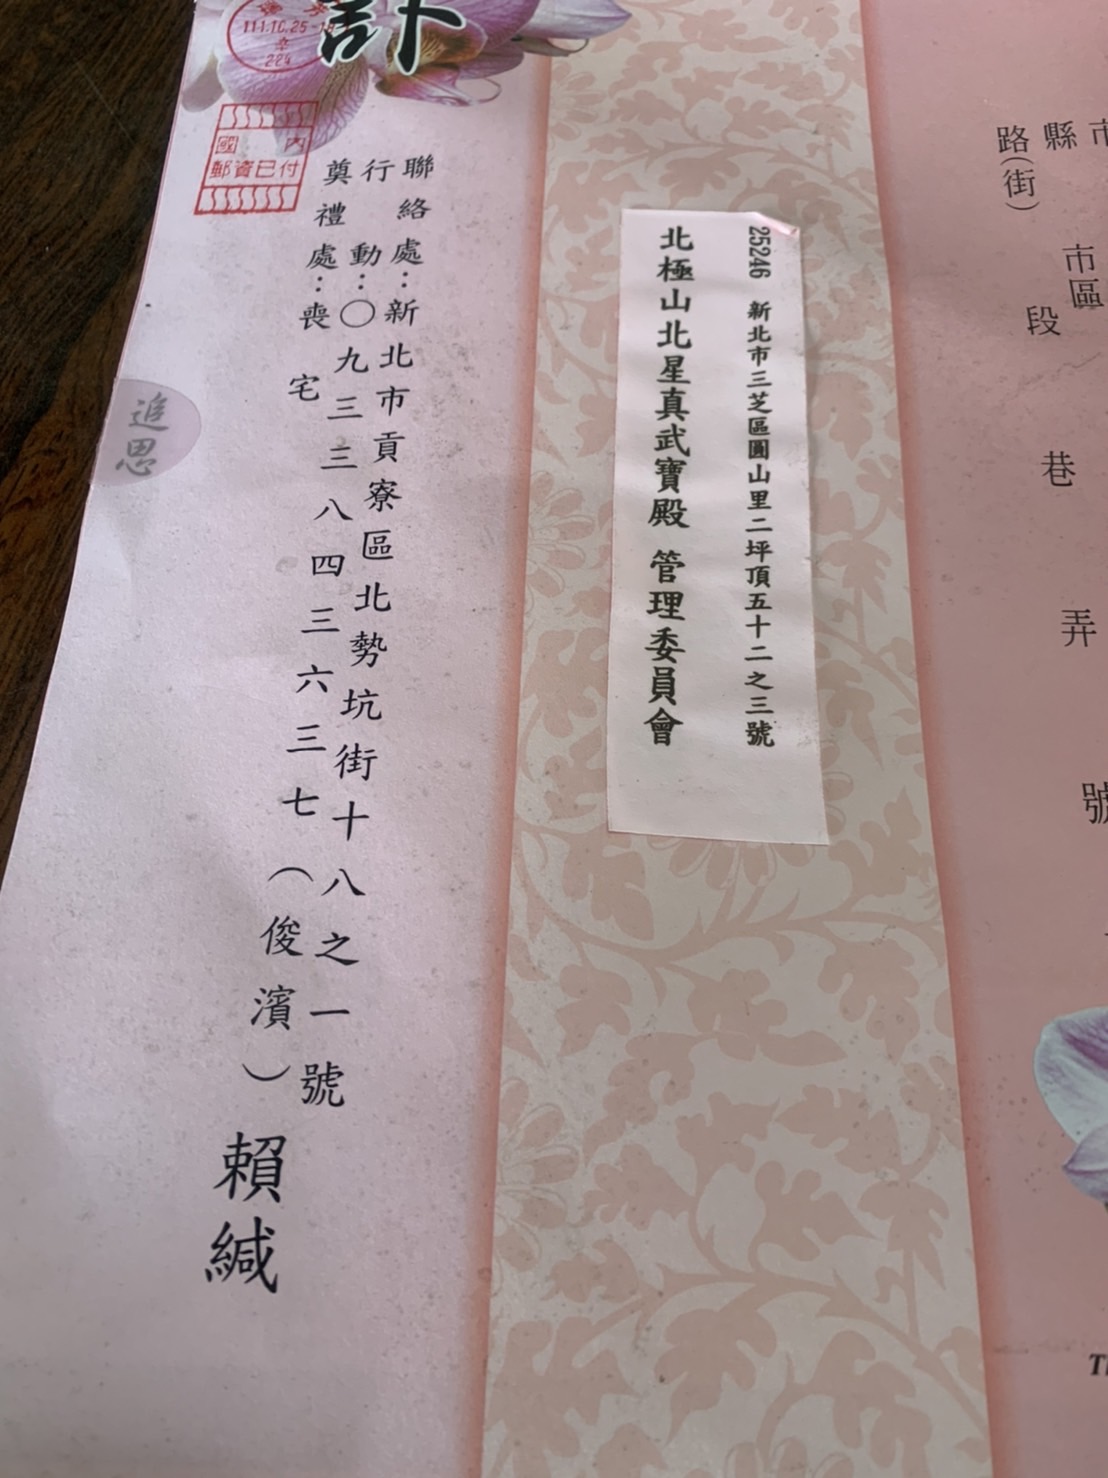 市
縣
市區
路(街)
段
巷
弄
號
25246 新北市三芝區圓山里二坪頂五十二之三號
北極山北星真武寶殿 管理委員會
訃
111.10.25
224
國內
郵資已付
聯絡處:新北市貢寮區北勢坑街十八之一號
行動:〇九三三八四三六三七(俊濱)
奠禮處:喪宅
賴緘
追思